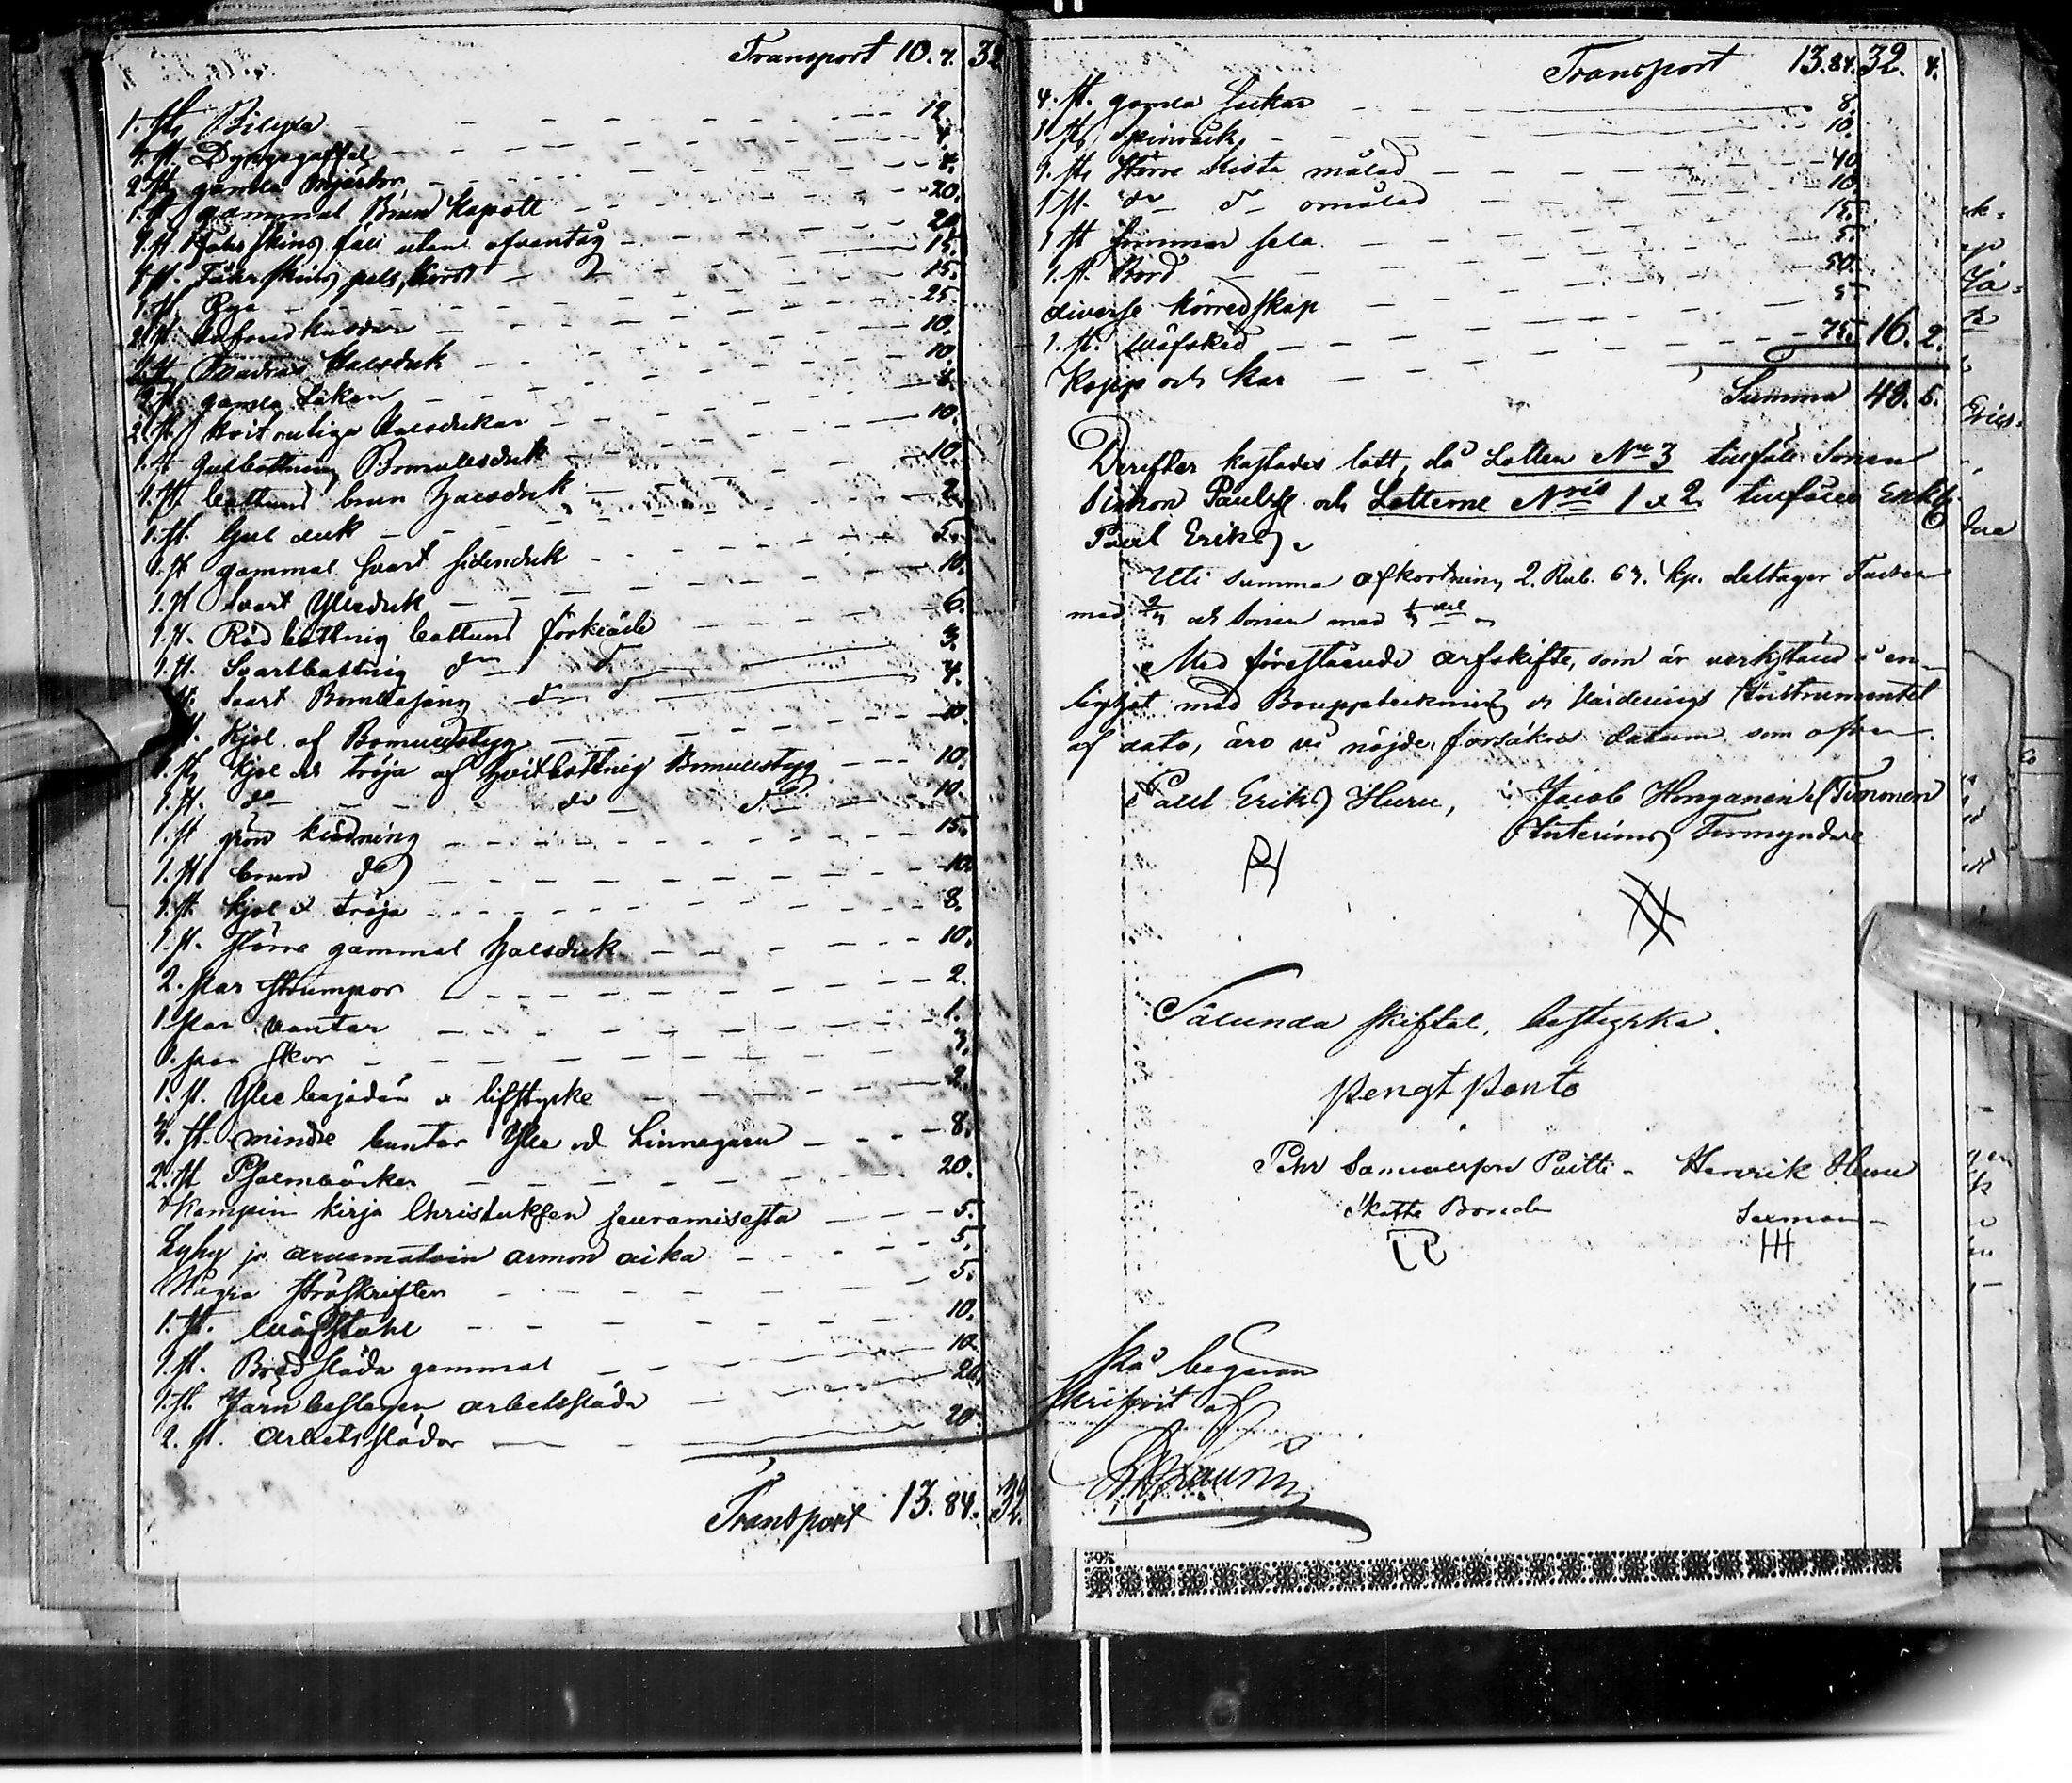 Transport 10. 7. 32
1. st. Bilyxa 12.
1. st. Dyngegaffel 4.
2. st. gamla 4.
1. st. gammal Brun Kapott 20.
1. st. Fåhrskins fäll utan ofvantyg 20.
1. st. Fåhrskins pels, kort 15.
1. st. Rya 15.
2. st. 25.
1. st. Madras Halsduk 10.
2. st. gamla Lakan 10.
2. st. hvit rutiga Halsdukar 8.
1. st. gulbottnig Bomullsduk 10.
1. st. cattuns brun halsduk 10.
1. st. gul duk 2.
1. st. gammal svart sidenduk 5.
1. st. svart Ylleduk 10.
1. st. Rödbottnig cattuns förkläde 6.
1. st. Svartbottnig do do 3.
st. svart do do 4.
st. Kjol af Bomullstyg 10.
1. st. Kjol och tröja af hvitbottnig Bomullstyg 10.
1. st. do do do 10
1. st grön klädning 15.
1. st. brun do 10.
1. st. Kjol & tröja 8.
1. st. större gammal halsduk 10.
2. par strumpor 2.
1 par vantar 1.
1. par skor 7.
1. st. Ylle & lifstycke 2.
4. st. mindre buntar Ylle och Linnegarn 8.
2. st Psalmböcker 20.
Kempin kirja Christuksen seuramisesta 5.
Lyhy ja arvamatoin armon aika 5.
Några ströskrifter 5.
1. st. Wäfstohl 10.
1. st. Bredsläda gammal 10
1. st. Järnbeslagen arbetssläda 20.
2. st. Arbetsslädor 20.
Transport 13. 84. 32.
Transport 13. 84. 32. 4.
4. st. gamla säckar 8.
1 st. Spinrock 10.
1. st. större kista målad 40
1 st. do do omålad 10.
1 st sommar sela 15.
1. st. Bord 5.
diverse körredskap 50.
1. st. wäfsked 5
Kopp och kar 75. 16. 2.
Summa 40. 6.
Derefter kastades lott, då Lotten No 3 tillföll Sonen
Simon Paulss. och Lotterne Nris 1 & 2 tillföllo Enkl.
Paul Eriks.
Uti summa afkortning 2. Rub. 67. kp. deltager Fadren
med och Sonen med
Med förestående arfskifte, som är verkstäld i en-
lighet med Bouppteckning och Värderings Instrumentet
af dato, äro vi nöjde, försäkras datum som ofvan.
Paul Eriks. Huru, Jacob Honganen Timonen
Interims Förmyndare
Sålunda skiftat, bestyrka.
Bengt Ponto
Pehr Samuelsson Puitti Henrik Huru
Skatte Bonde Sexman
På begäran
skrifvit af